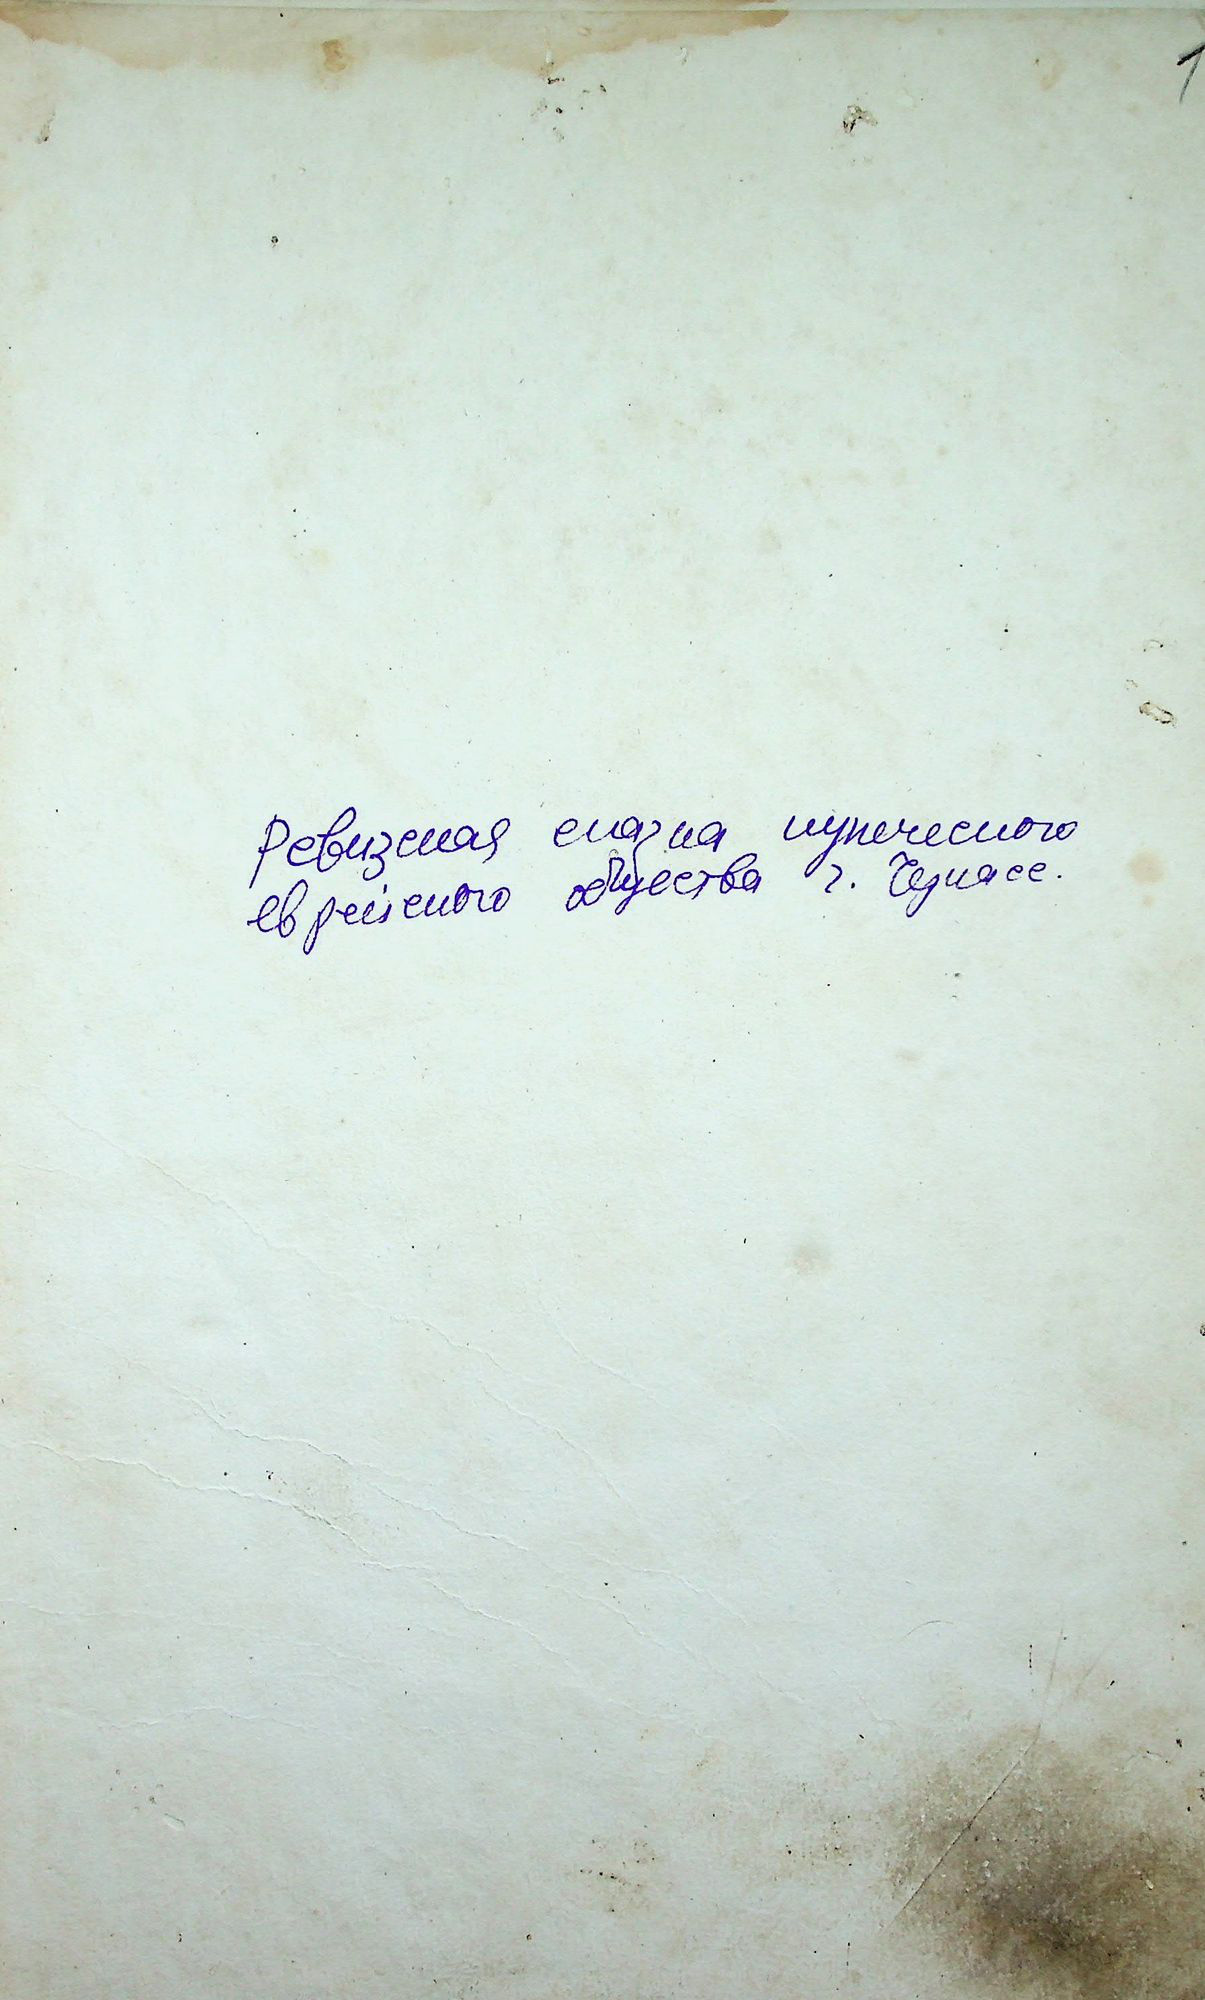 1
Ревизская сказка купеческого
еврейского общества г. Черкасс.